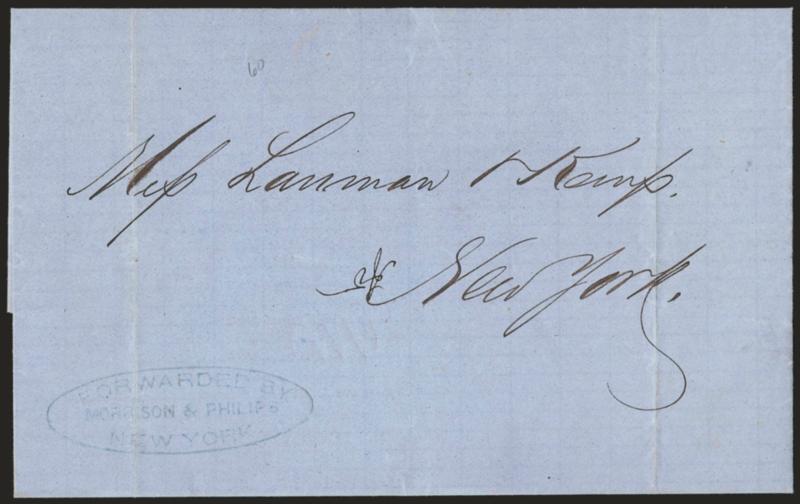 60
Mess Lanman & Kemp.
New York.
FORWARDED BY
MORRISON & PHILIPS
NEW YORK